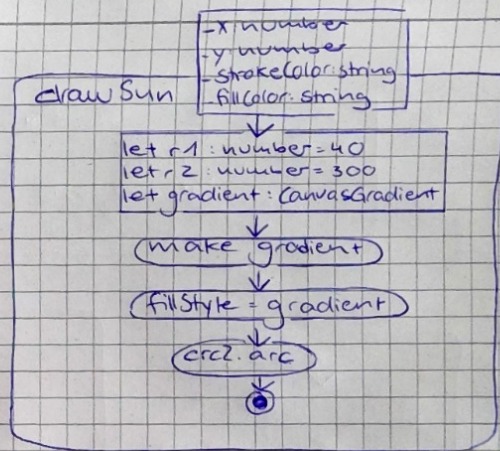 -x:number
-y:number
-strokeColor:string
-fillColor:string
drawSun
let r1:number=40
let r2:number=300
let gradient:CanvasGradient
make gradient
fillStyle = gradient
crc2.arc